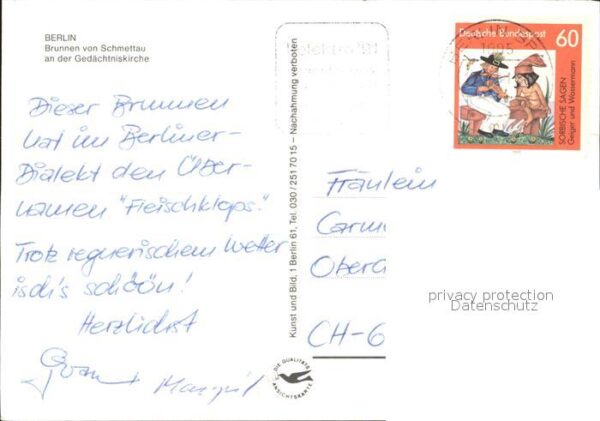 BERLIN
Brunnen von Schmettau
an der Gedächtniskirche
Dieser Brunnen
hat im Berliner-
Dialekt den Über-
namen "Fleischklops."
Trotz regnerischem Wetter
isch's schön!
Herzlichst
Margrit
Kunst und Bild, 1 Berlin 61, Tel. 030 / 251 70 15 – Nachahmung verboten
DIE QUALITÄTS
ANSICHTSKARTE
Deutsche Bundespost
60
SORBISCHE SAGEN
Geiger und Wassermann
BERLIN
Fräulein
CH-6
privacy protection
Datenschutz